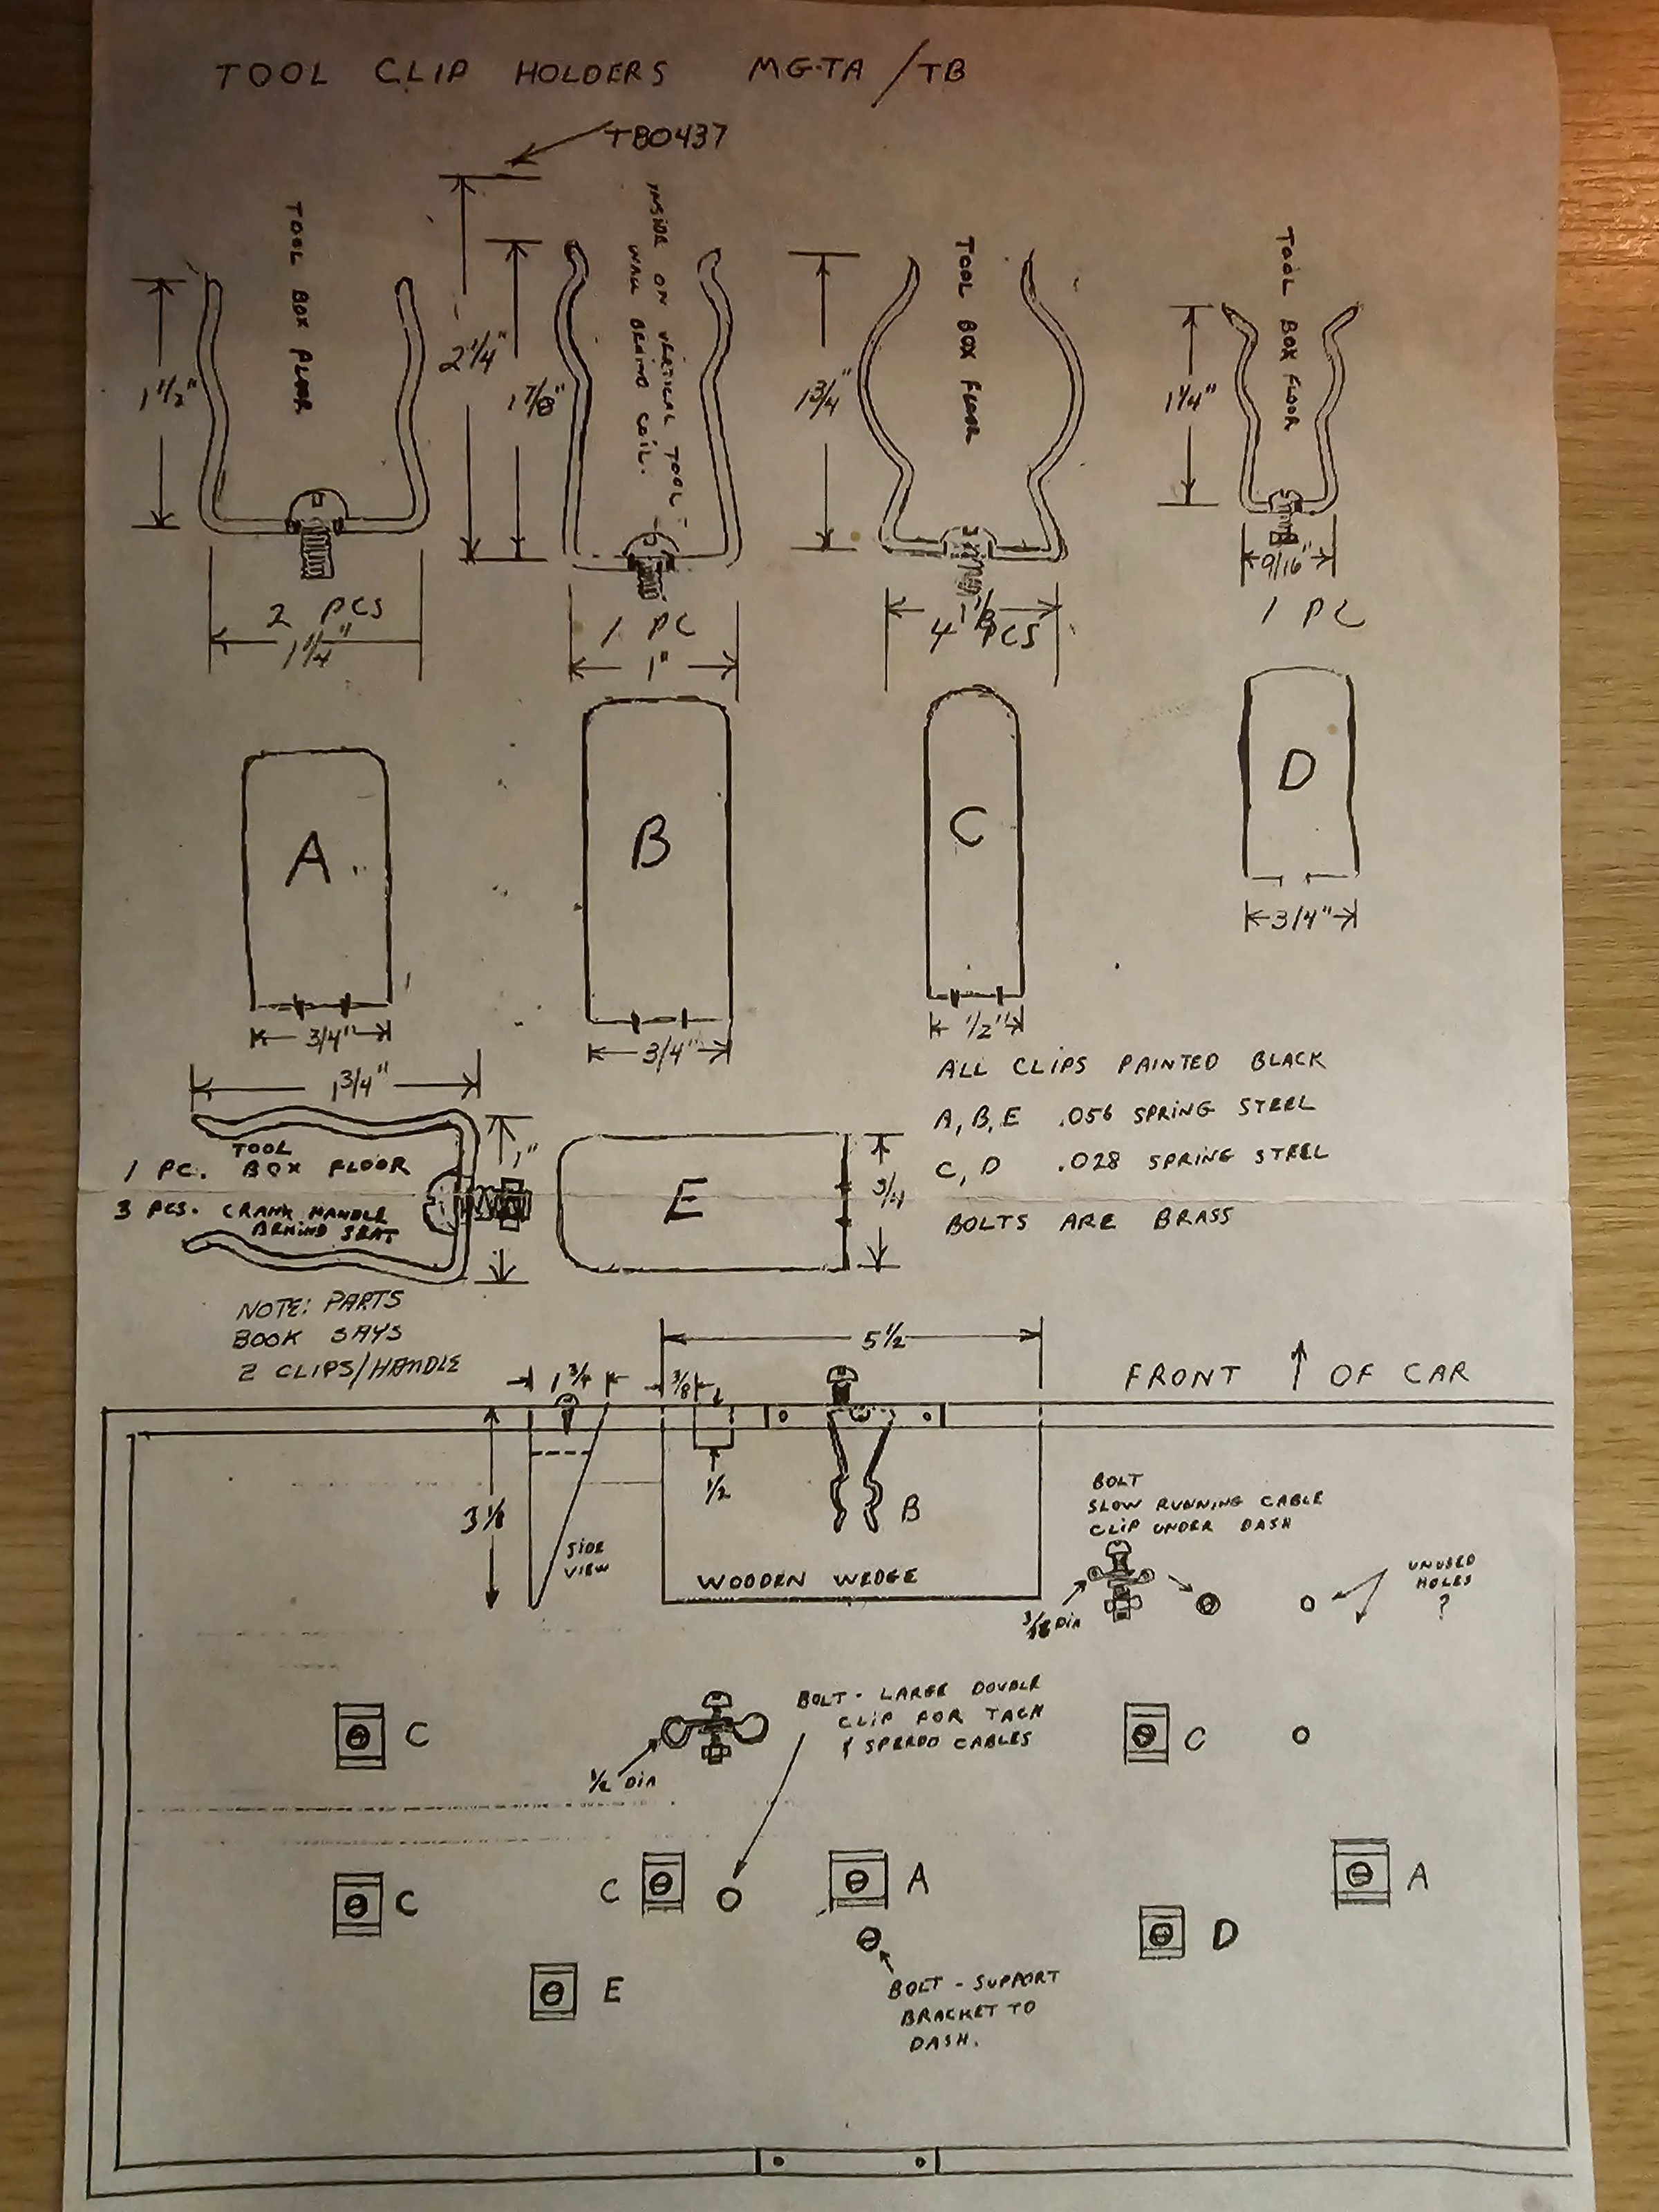 TOOL CLIP HOLDERS MG-TA/TB
TB0437
TOOL BOX FLOOR
1 1/2"
2 PCS
1 1/4"
2 1/4"
1 7/8"
INSIDE ON VERTICAL TOOL-
WALL BEHIND COIL.
1 PC
1"
1 3/4"
TOOL BOX FLOOR
4 PCS
1 1/8
1 1/4"
TOOL BOX FLOOR
9/16"
1 PC
A
3/4"
B
3/4"
C
1/2"
D
3/4"
ALL CLIPS PAINTED BLACK
A, B, E .056 SPRING STEEL
C, D .028 SPRING STEEL
BOLTS ARE BRASS
1 3/4"
1"
TOOL
1 PC. BOX FLOOR
3 PCS. CRANK HANDLE
BEHIND SEAT
E
3/4
NOTE: PARTS
BOOK SAYS
2 CLIPS/HANDLE
5 1/2
1 3/4
3/8
FRONT ↑ OF CAR
3 1/8
1/2
SIDE
VIEW
B
WOODEN WEDGE
BOLT
SLOW RUNNING CABLE
CLIP UNDER DASH
DIA
UNUSED
HOLES
?
C
1/2 DIA
BOLT - LARGE DOUBLE
CLIP FOR TACH
& SPEEDO CABLES
C
C
C
A
A
D
E
BOLT - SUPPORT
BRACKET TO
DASH.